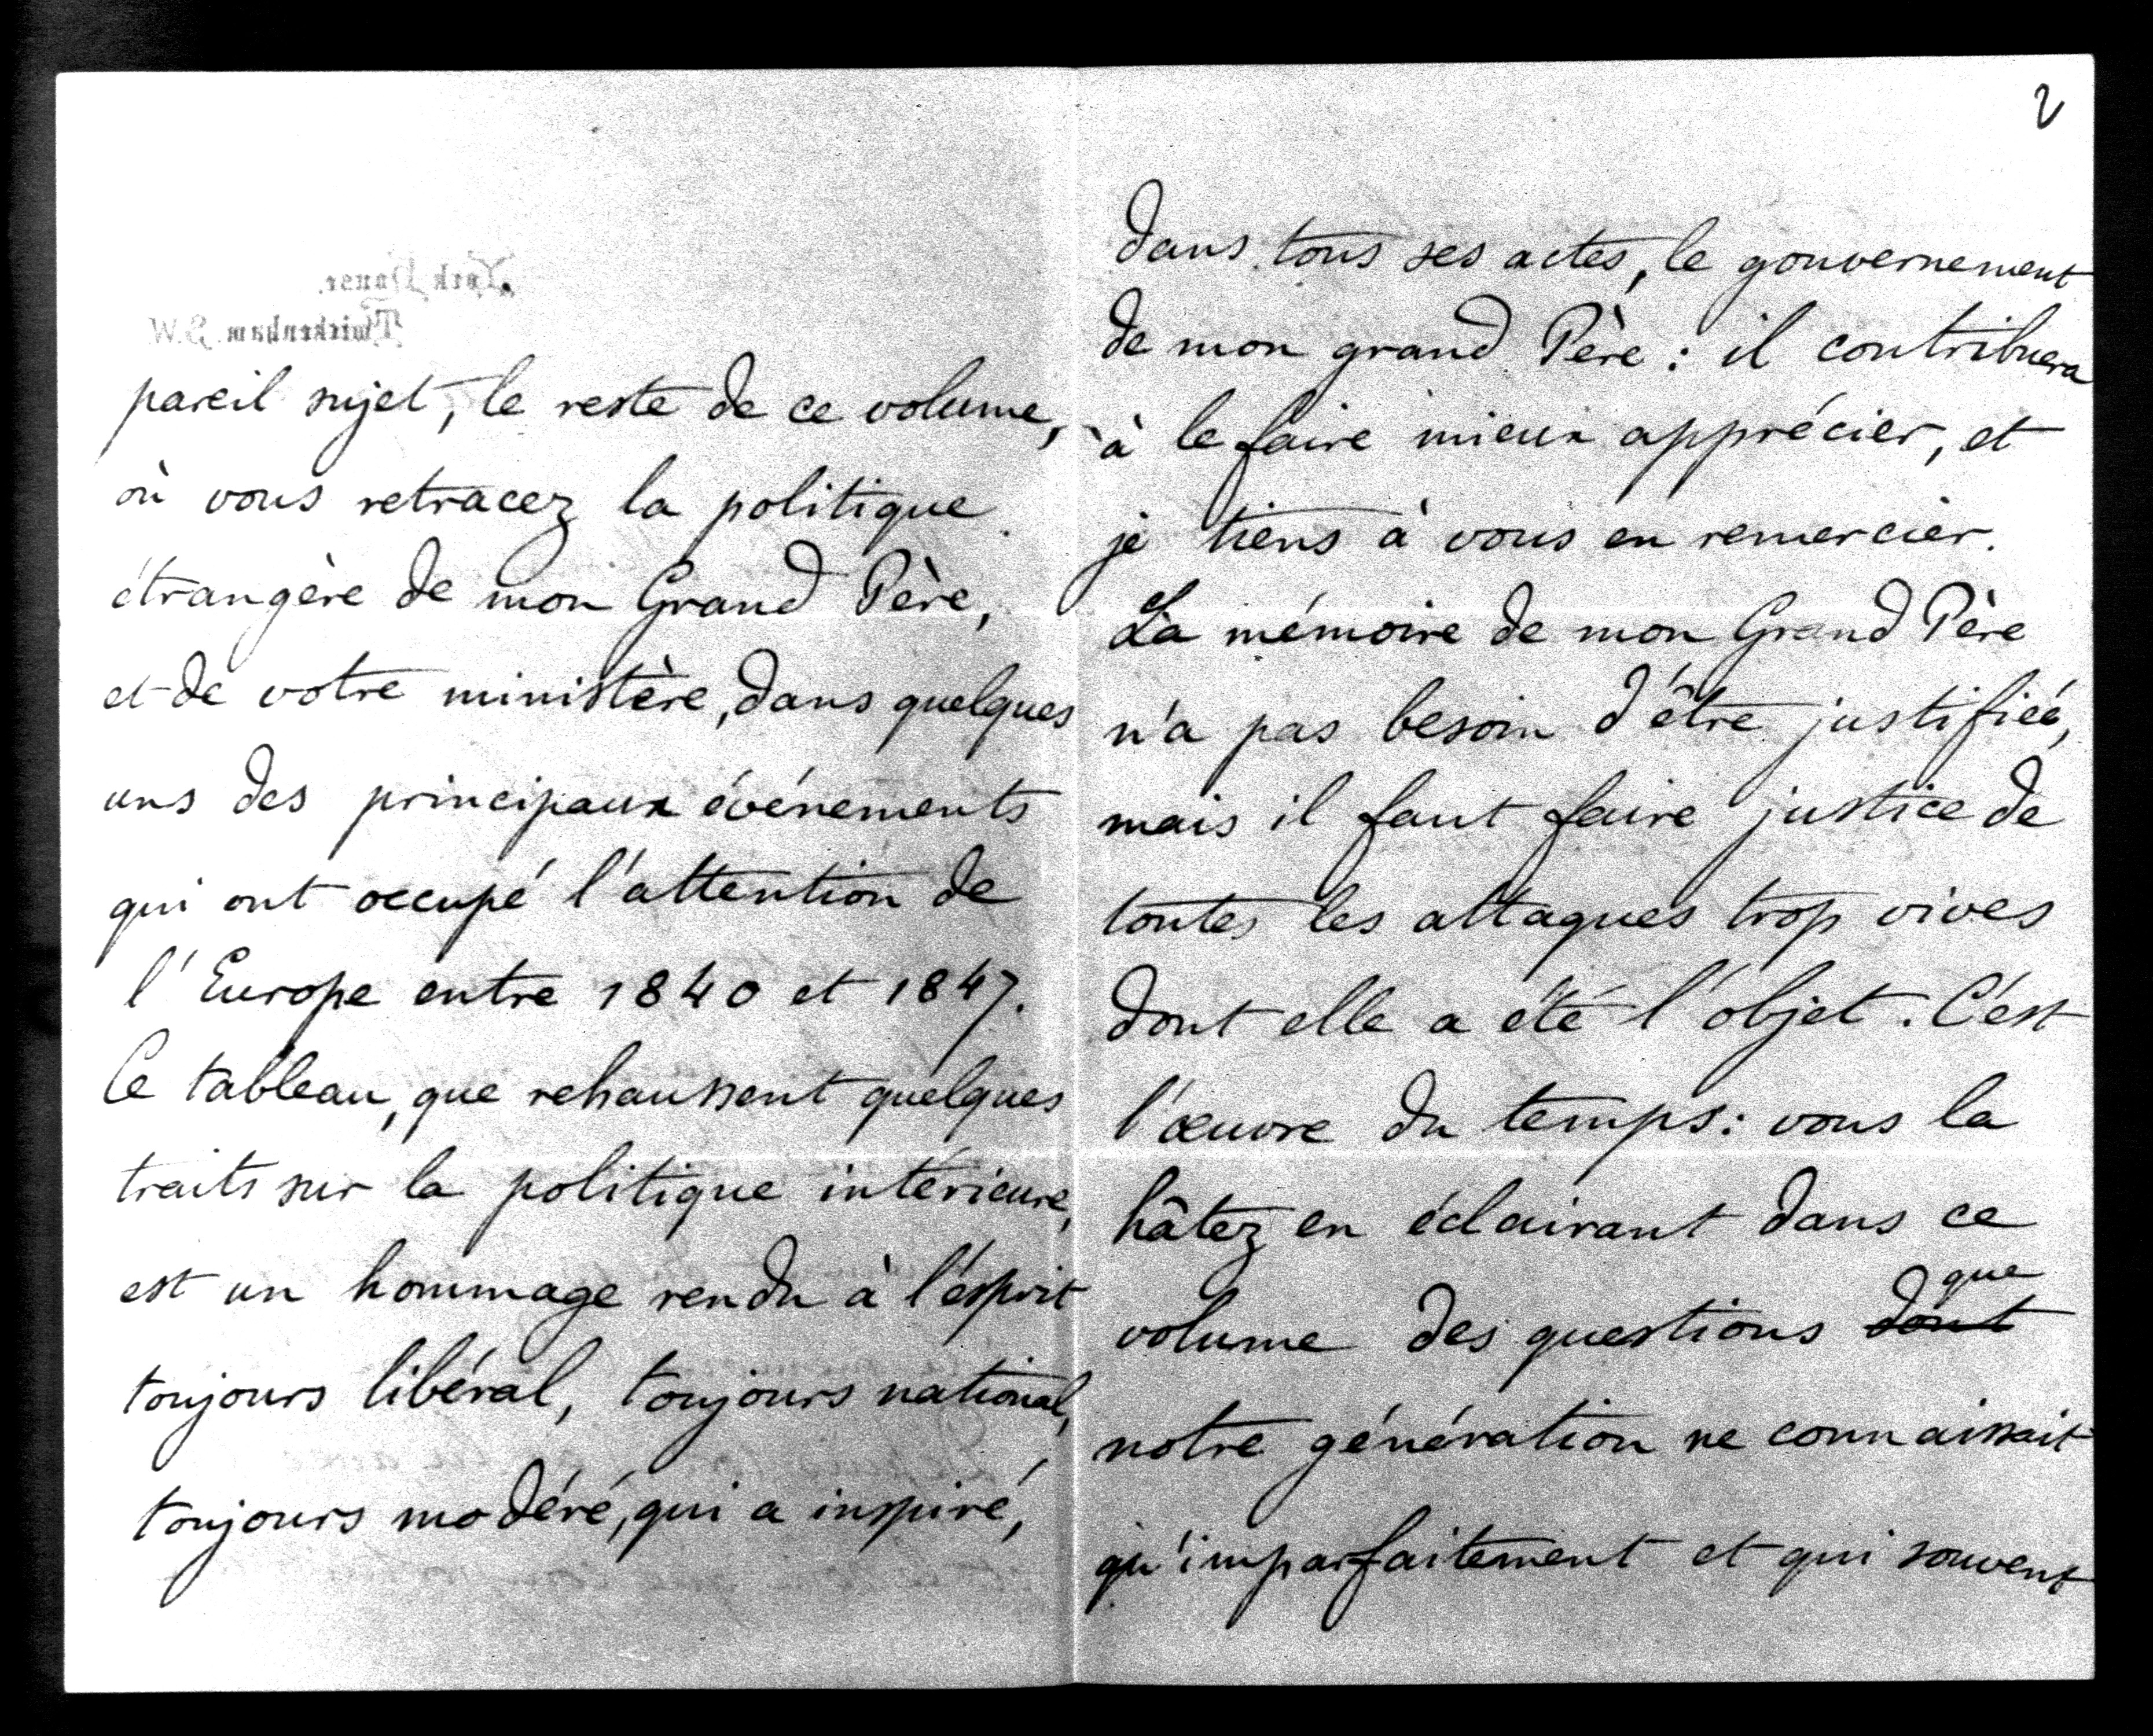 York House.
Twickenham. S.W.
pareil sujet, le reste de ce volume,
où vous retracez la politique
étrangère de mon Grand Père,
et de votre ministère, dans quelques
uns des principaux événements
qui ont occupé l'attention de
l'Europe entre 1840 et 1847.
Ce tableau, que rehaussent quelques
traits sur la politique intérieure,
est un hommage rendu à l'esprit
toujours libéral, toujours national,
toujours modéré, qui a inspiré,
2
dans tous ses actes, le gouvernement
de mon grand Père : il contribuera
à le faire mieux apprécier, et
je tiens à vous en remercier.
La mémoire de mon Grand Père
n'a pas besoin d'être justifiée,
mais il faut faire justice de
toutes les attaques trop vives
dont elle a été l'objet. C'est
l'œuvre du temps : vous la
hâtez en éclairant dans ce
volume des questions dont que
notre génération ne connaissait
qu'imparfaitement et qui souvent